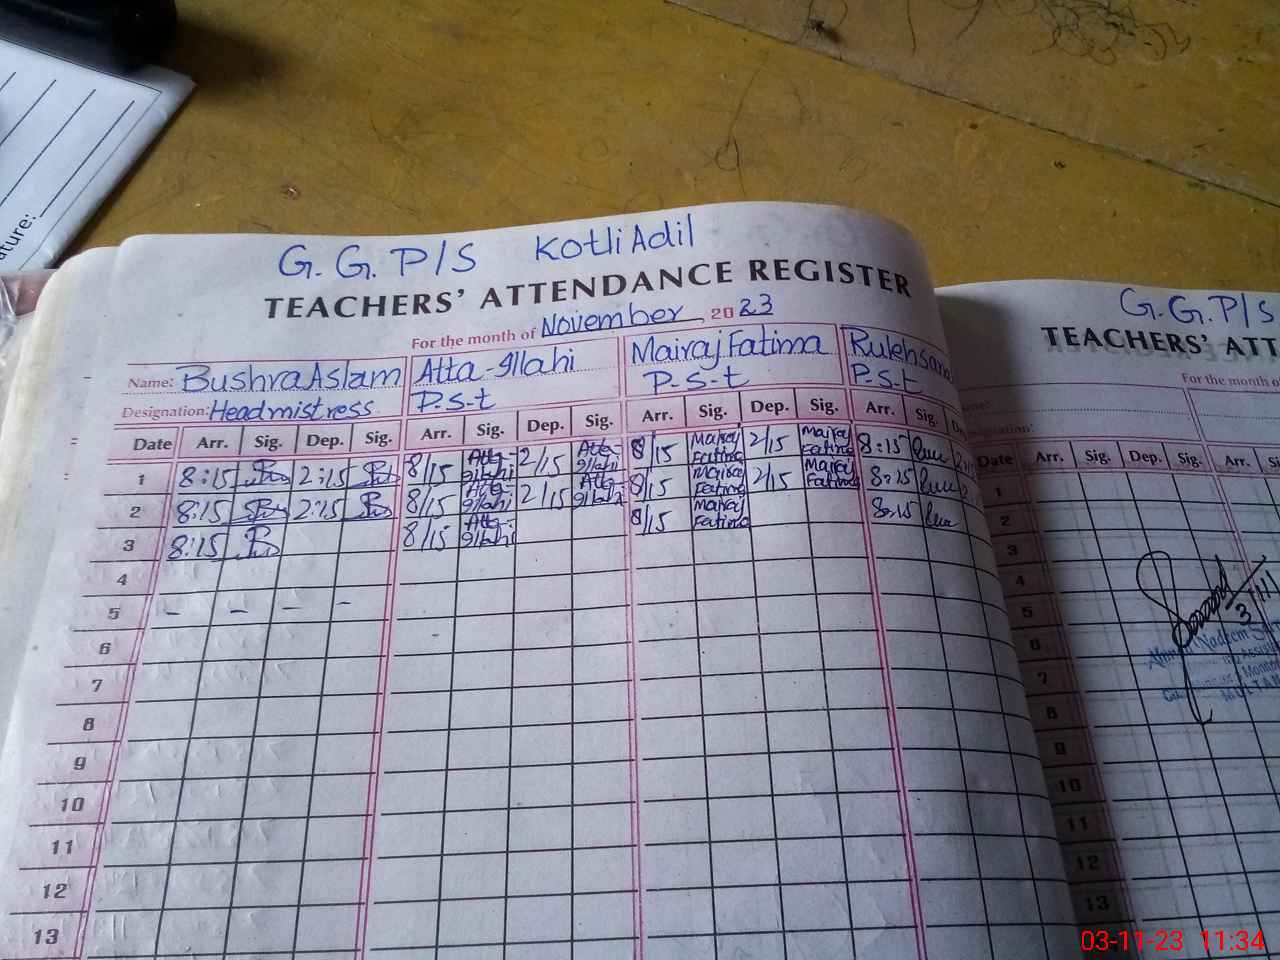 ature:
G.G.P/S Kotli Adil
TEACHERS' ATTENDANCE REGISTER
For the month of November, 2023
Name: Bushra Aslam Atta-Illahi Mairaj Fatima
Designation: Headmistress P-S-t P-S-t P-S-t
Date Arr. Sig. Dep. Sig. Arr. Sig. Dep. Sig. Arr. Sig. Dep. Sig. Arr. Sig.
1 8:15 2:15 8/15 Atta-Illahi 2/15 Atta-Illahi 8/15 Mairaj Fatima 2/15 Mairaj Fatima 8:15
2 8:15 2:15 8/15 Atta-Illahi 2/15 Atta-Illahi 8/15 Mairaj Fatima 2/15 Mairaj Fatima 8:15
3 8:15 8/15 Atta-Illahi 8/15 Mairaj Fatima 8:15
4
5 - - - -
6
7
8
9
10
11
12
13
G.G.P/S
TEACHERS' ATT
For the month o
ame:
signation:
Date Arr. Sig. Dep. Sig. Arr. Si
1
2
3
4
5
6
7
8
9
10
11
12
13
Nadeem
03-11-23 11:34